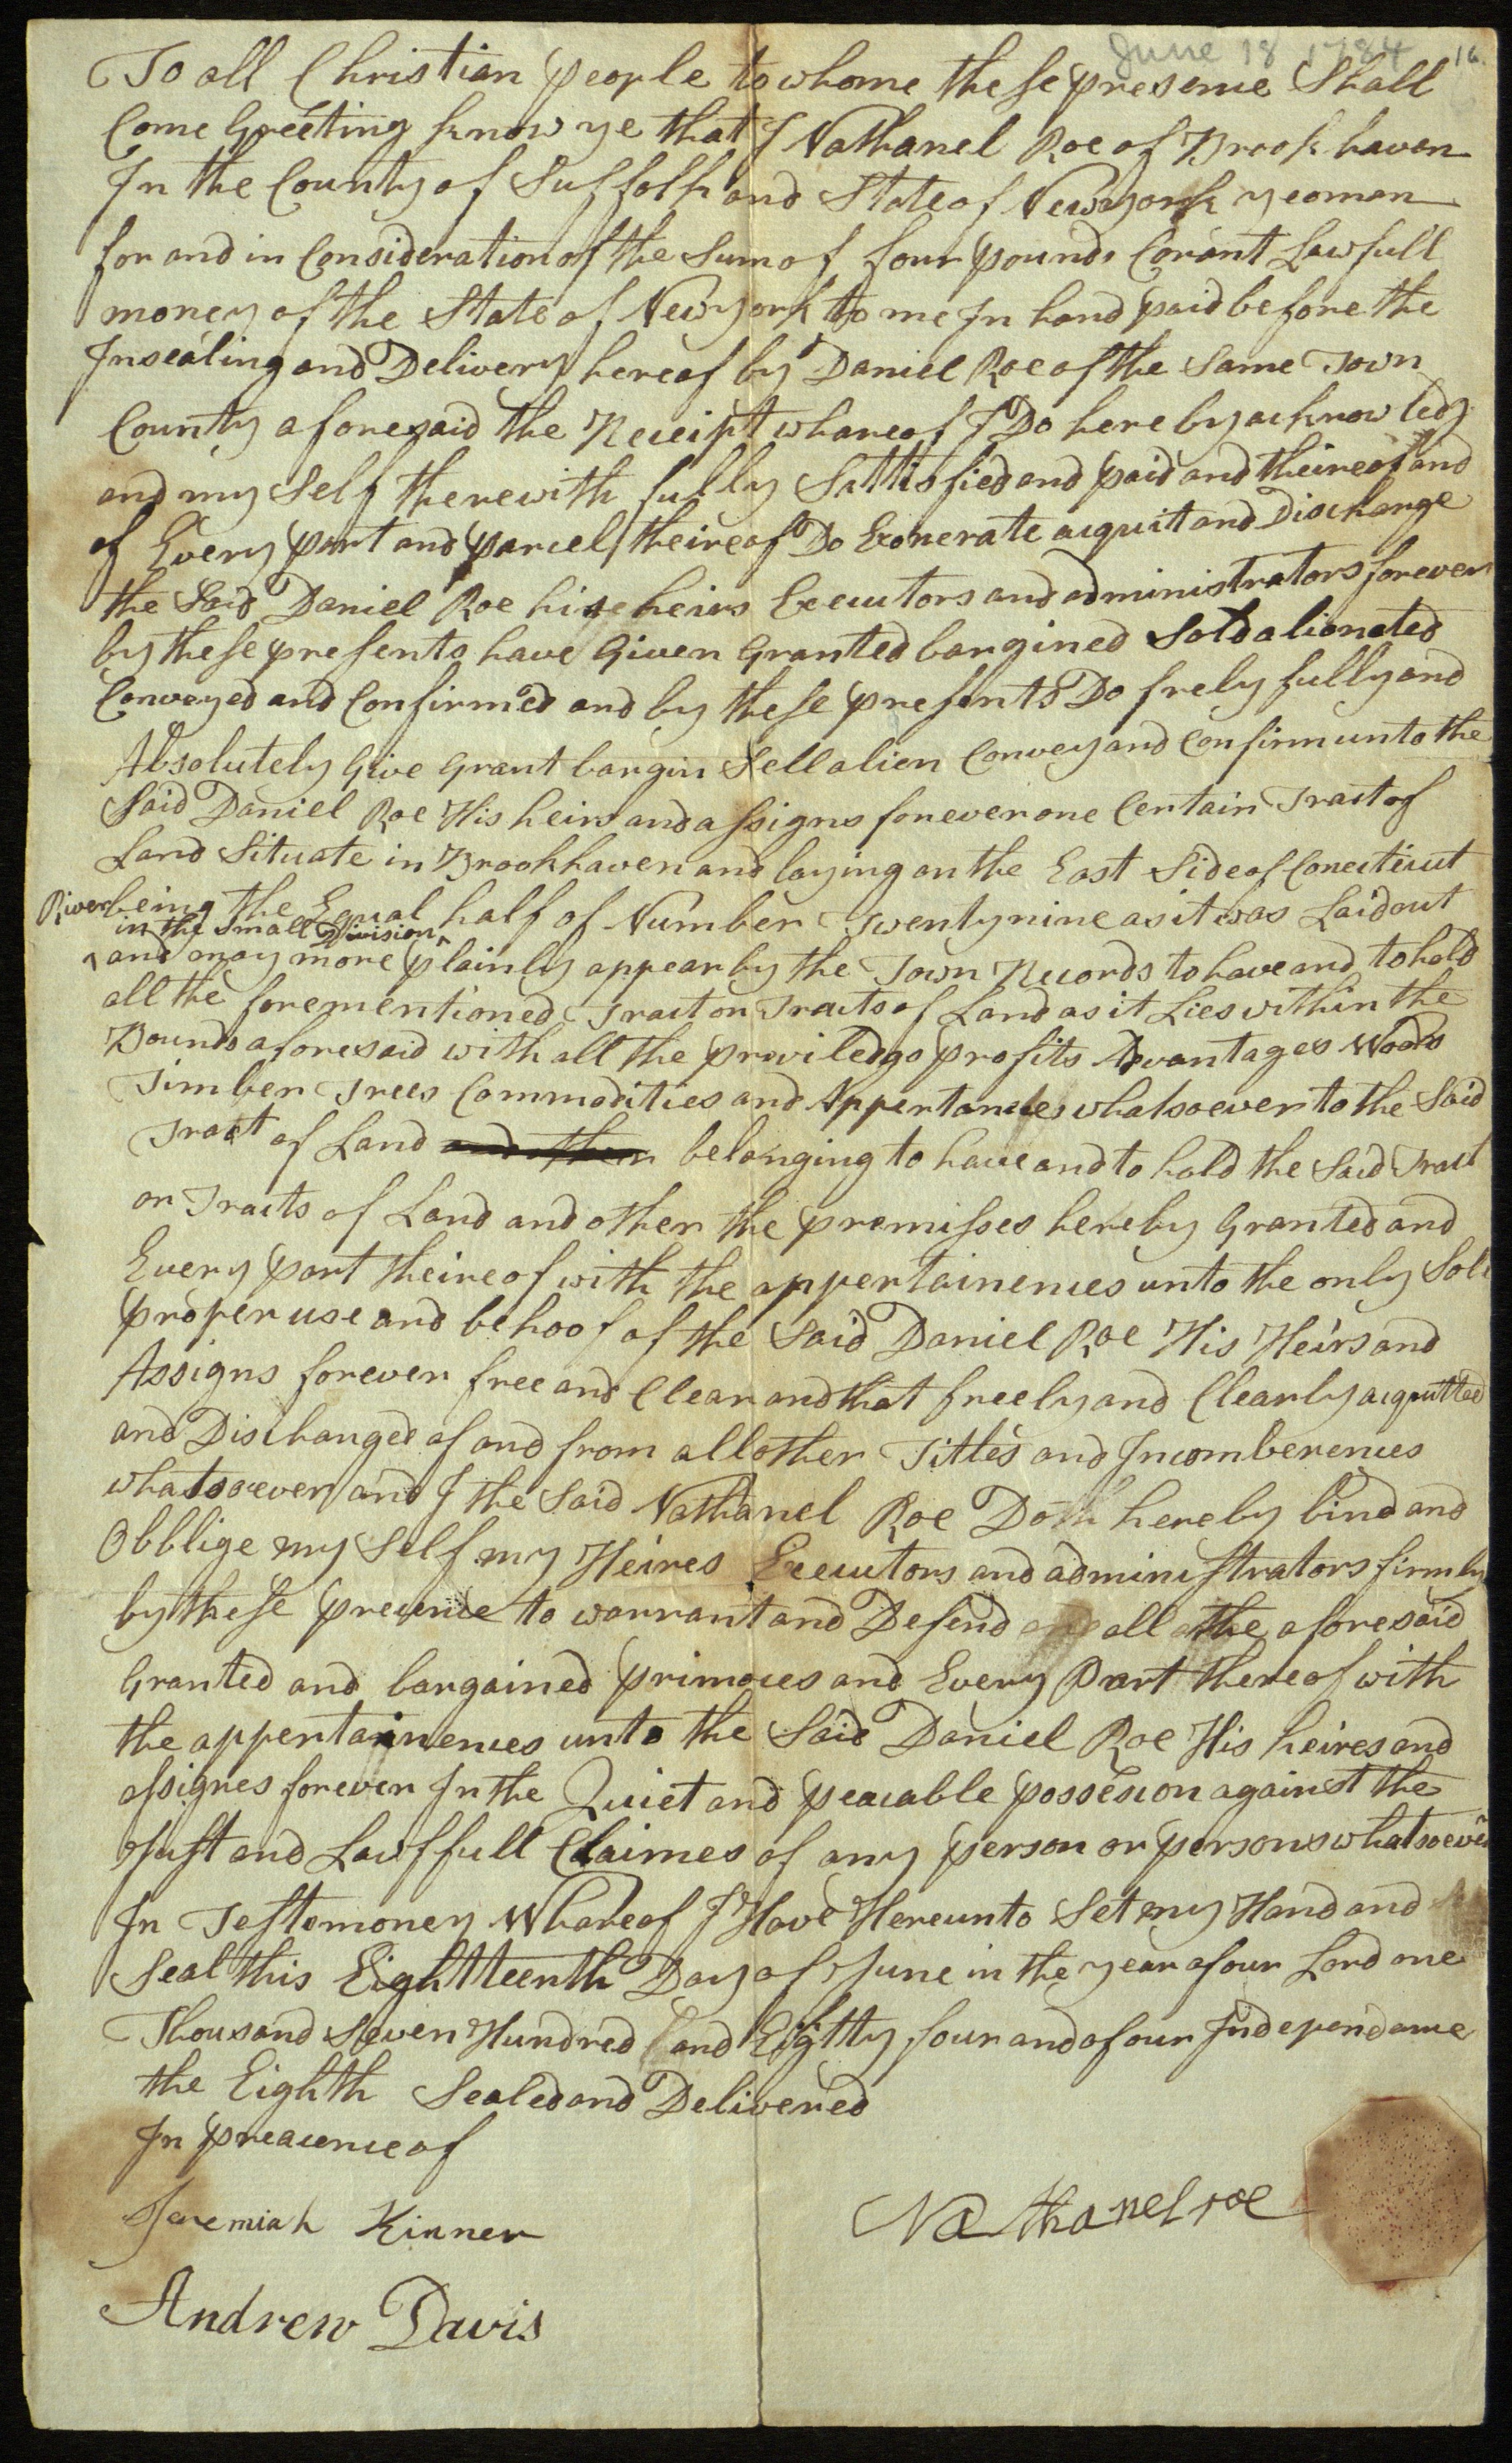 June 18 1784 16.
To all Christian people to whome these presence Shall
Come Greeting know ye that I Nathanel Roe of Brookhaven
In the County of Suffolk and State of Newyork yeoman
for and in Consideration of the Sum of four pounds Corant Lawfull
money of the State of Newyork to me In hand paid before the
Insealing and Delivery hereof by Daniel Roe of the Same Town
County aforesaid the Receipt whareof I Do here by acknowledg
and my Self therewith fully Sattisfied and paid and theireof and
of Every part and parcel theireof Do Exonerate acquit and Discharge
the Said Daniel Roe his heirs Executors and administrators forever
by these presents have Given Granted bargined Sold alionated
Conveyed and Confirmed and by these presents Do frely fully and
Absolutely Give Grant bargin Sell alien Convey and Confirm unto the
Said Daniel Roe His heirs and assigns forever one Certain Tract of
Land Situate in Brookhaven and laying on the East Side of Conecticut
River being the Equal half of Number Twenty nine as it was Laid out
in the Small Division
and may more plainly appear by the Town Records to have and to hold
all the forementioned Tract or Tracts of Land as it Lies within the
Bounds aforesaid with all the priviledgs profits Advantages Woods
Timber Trees Commodities and Appertances whatsoever to the Said
Tract of Land and other belonging to have and to hold the Said Tract
or Tracts of Land and other the premisses hereby Granted and
Every part theireof with the appertainences unto the only Sole
proper use and behoof of the Said Daniel Roe His Heirs and
Assigns forever free and Clear and that freely and Clearly acquitted
and Discharged of and from all other Titles and Incomberences
whatsoever and I the Said Nathanel Roe Doth hereby bind and
Obblige my Self my Heires Executors and administrators firmly
by these to warrant and Defend all the aforesaid
Granted and bargained and Every Part thereof with
the appertainences unto the Said Daniel Roe His heires and
assignes forever In the Quiet and peacable possesion against the
Just and Lawffull Claimes of any person or persons whatsoever
In Testemoney Whareof I Have Hereunto Set my Hand and
Seal this Eightteenth Day of June in the year of our Lord one
Thousand Seven Hundred and Eightty four and of our Independance
the Eighth Sealed and Delivered
In preacence of
Jeremiah Kinner
Nathanel roe
Andrew Davis